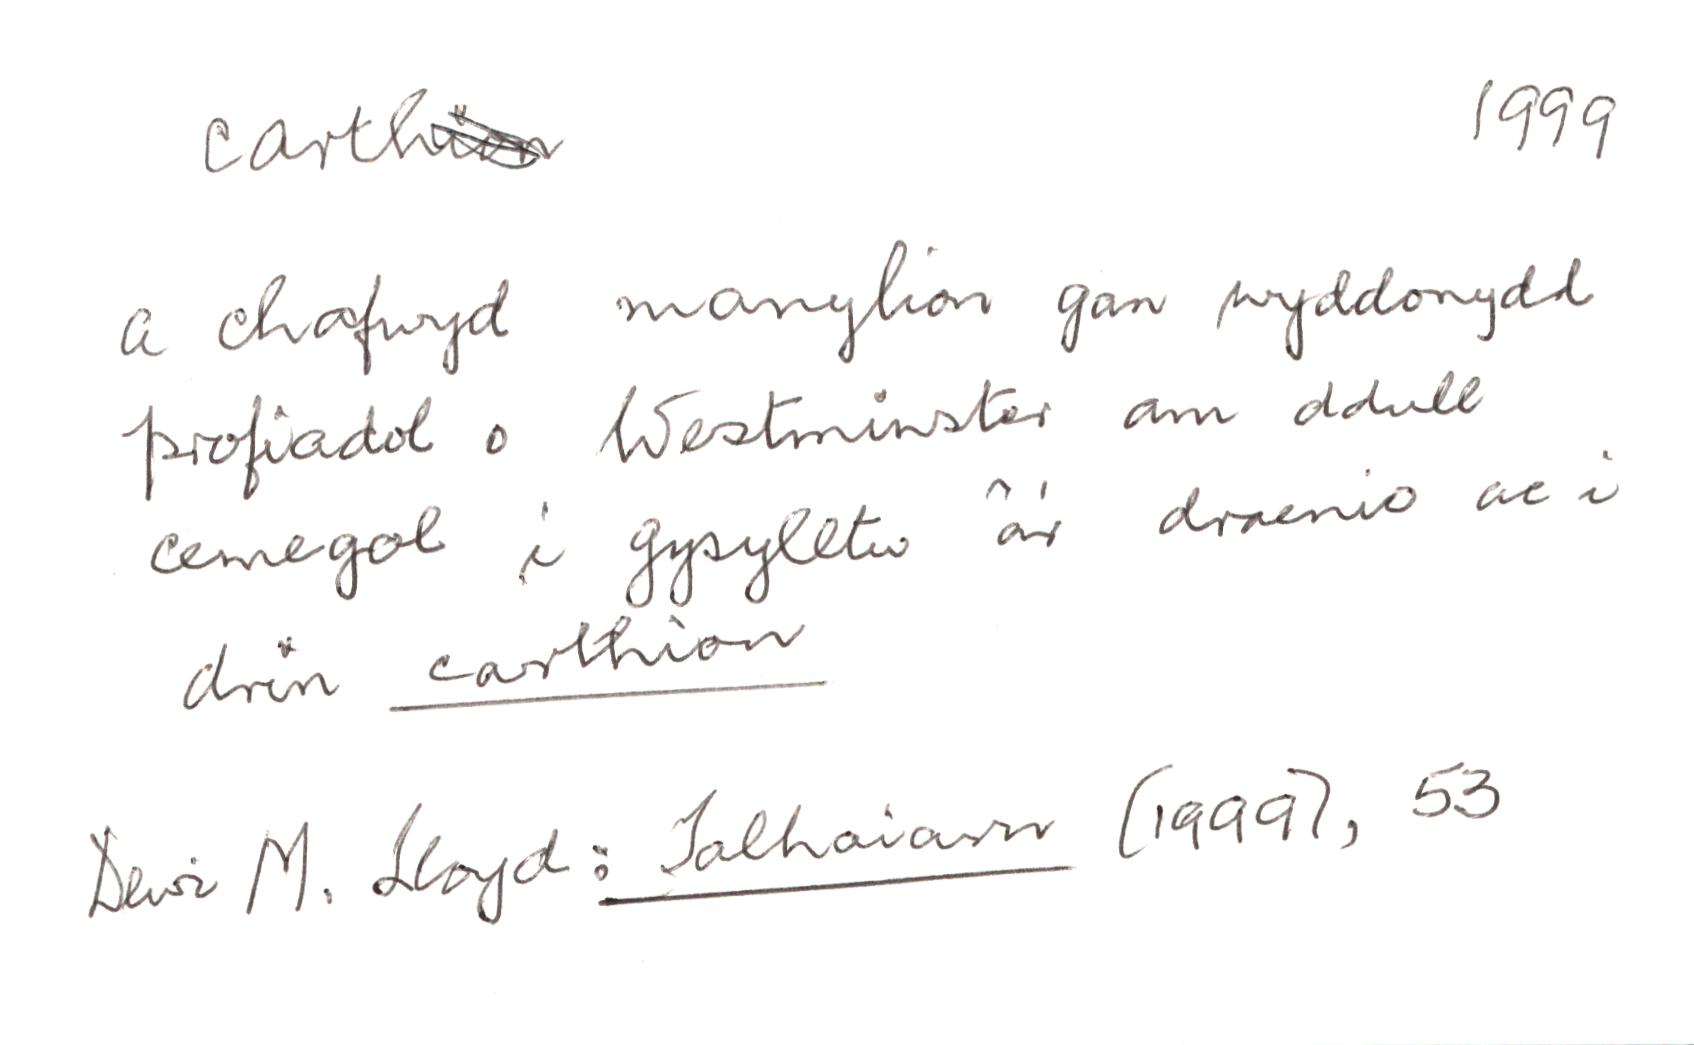 carth
1999
a chafwyd manylion gan wyddonydd
profiadol o Westminster am ddull
cemegol i gysylltu â'r draenio ac i
drin carthion
Dewi M. Lloyd: Talhaiarn (1999), 53